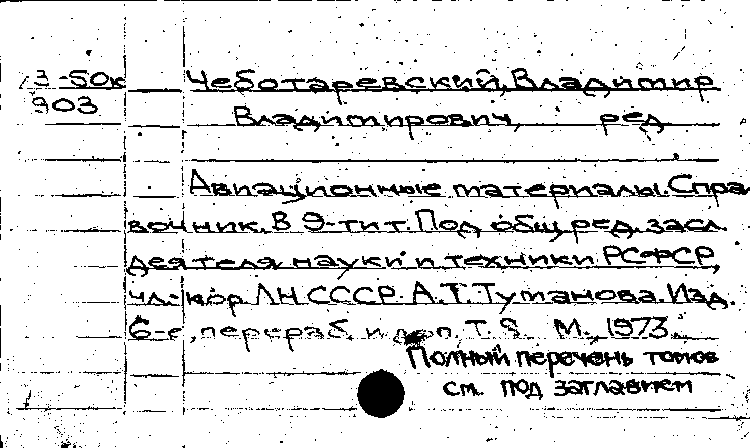 13-50к Чеботаревский, Владимир
903 Владимирович, ред
Авиационные материалы. Спра
вочник. В 9-ти т. Под общ. ред. засл.
деятеля науки и техники РСФСР,
чл.-кор. АН СССР А.Т. Туманова. Изд.
6-е, перераб. и доп. Т. 8. М., 1973.
Полный перечень томов
см. под заглавием